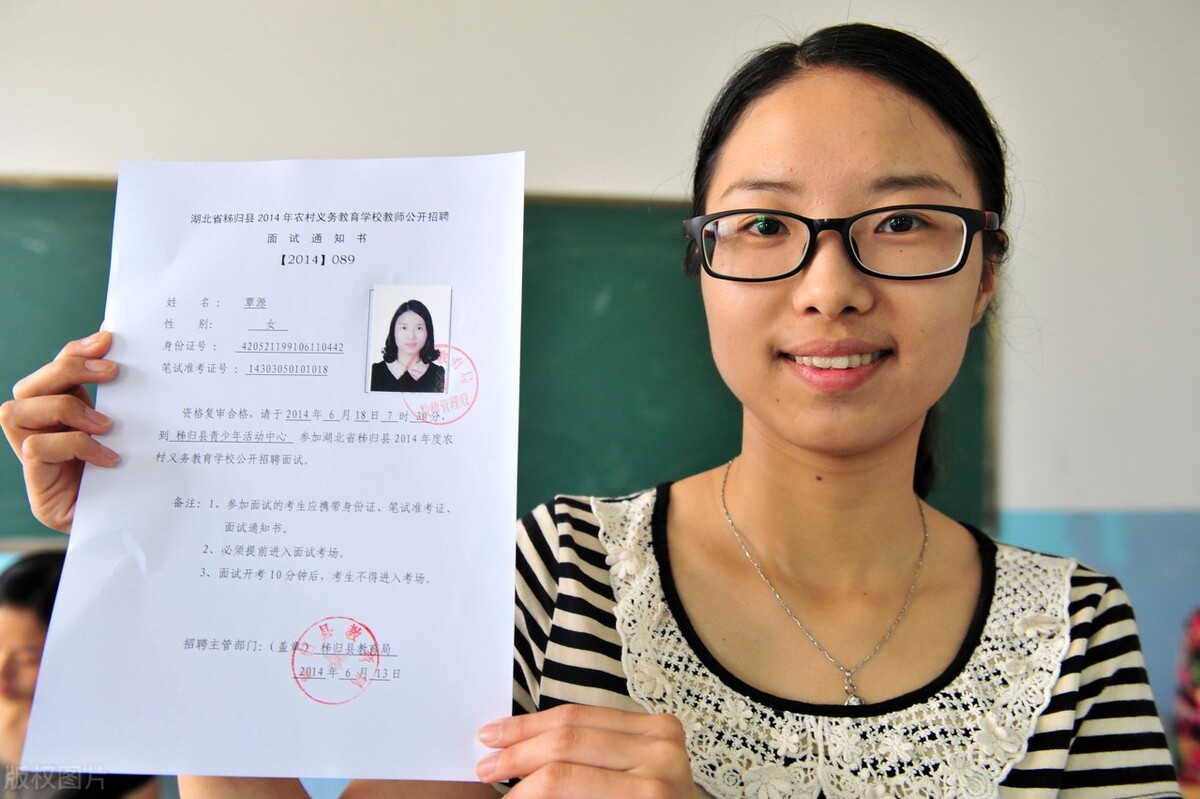 湖北省秭归县2014年农村义务教育学校教师公开招聘
面试通知书
【2014】089
姓 名： 覃源
性 别： 女
身份证号： 420521199106110442
笔试准考证号：14303050101018
资格复审合格，请于2014年6月18日7时30分，
到 秭归县青少年活动中心 参加湖北省秭归县2014年度农
村义务教育学校公开招聘面试。
备注：1、参加面试的考生应携带身份证、笔试准考证、
面试通知书。
2、必须提前进入面试考场。
3、面试开考10分钟后，考生不得进入考场。
招聘主管部门：（盖章） 秭归县教育局
2014年6月13日
版权图片